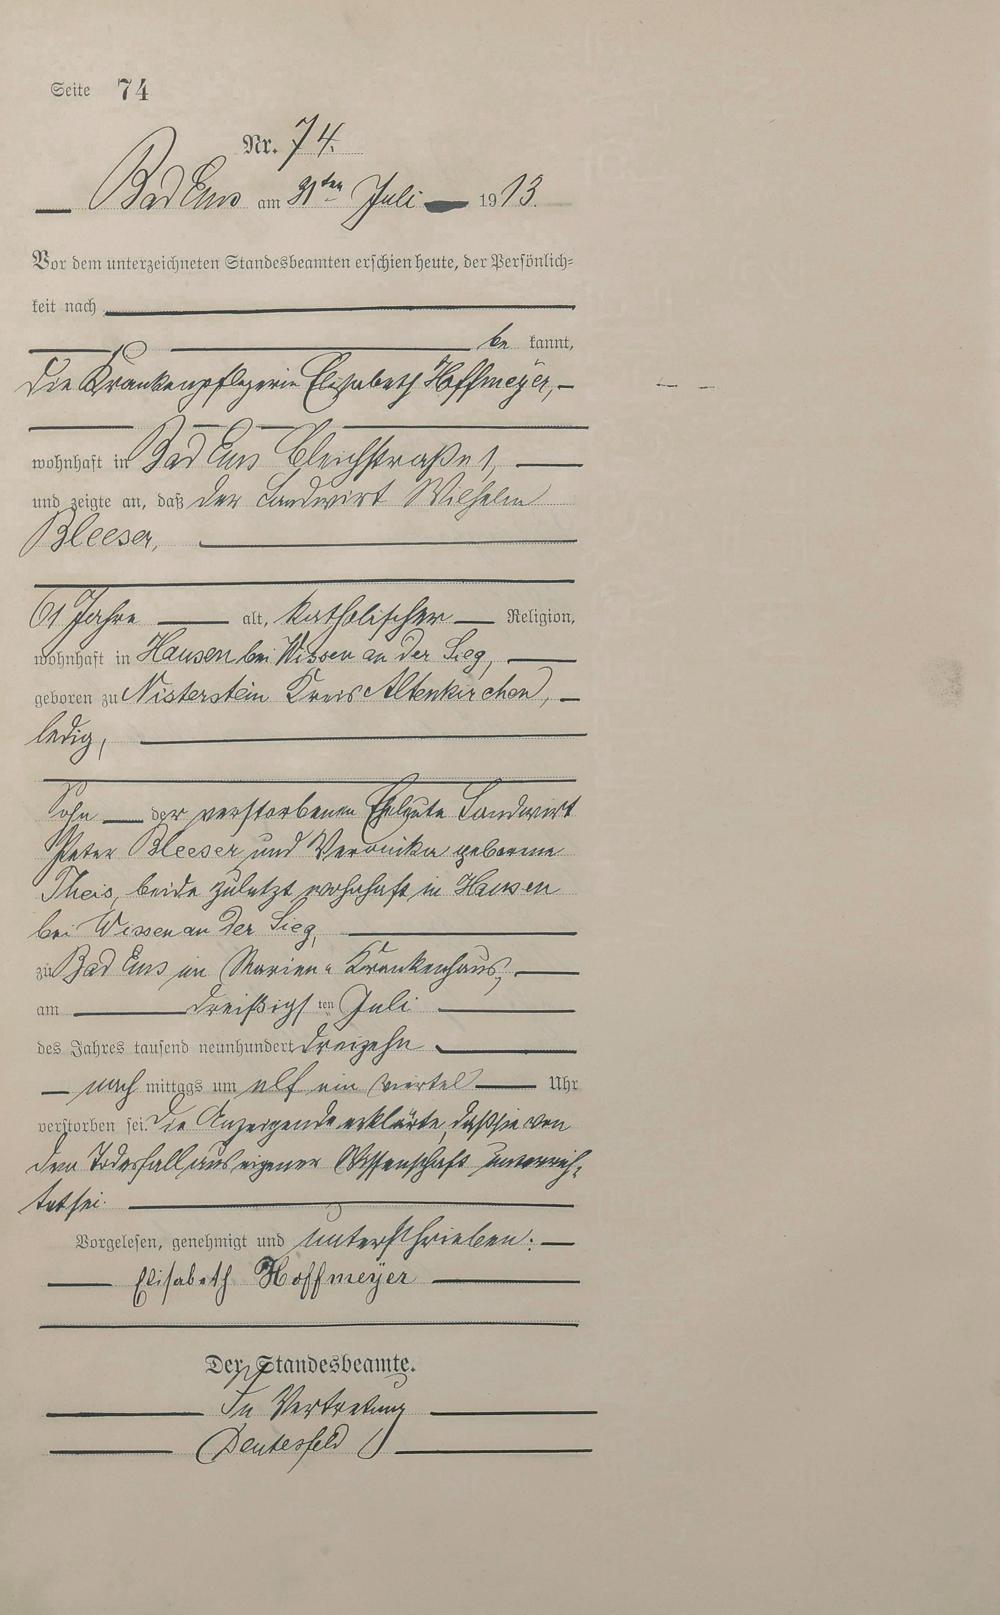 Seite 74
Nr. 74.
Bad Ems am 31ten Juli 1913.
Vor dem unterzeichneten Standesbeamten erschien heute, der Persönlich=
keit nach
be kannt,
die Krankenpflegerin Elisabeth Hoffmeyer,
wohnhaft in Bad Ems Bleichstraße 1,
und zeigte an, daß der Landwirt Wilhelm
Bleeser,
61 Jahre alt, katholischer Religion,
wohnhaft in Hausen bei Wissen an der Sieg,
geboren zu Nisterstein Kreis Altenkirchen,
ledig,
Sohn der verstorbenen Eheleute Landwirt
Peter Bleeser und Veronika geborene
Theis, beide zuletzt wohnhaft in Hausen
bei Wissen an der Sieg,
zu Bad Ems im Marien=Krankenhaus,
am dreißigsten Juli
des Jahres tausend neunhundert dreizehn
nach mittags um elf ein viertel Uhr
verstorben sei. Die Anzeigende erklärte, daß sie von
dem Todesfall aus eigener Wissenschaft unterrich=
tet sei.
Vorgelesen, genehmigt und unterschrieben:
Elisabeth Hoffmeyer
Der Standesbeamte.
In Vertretung